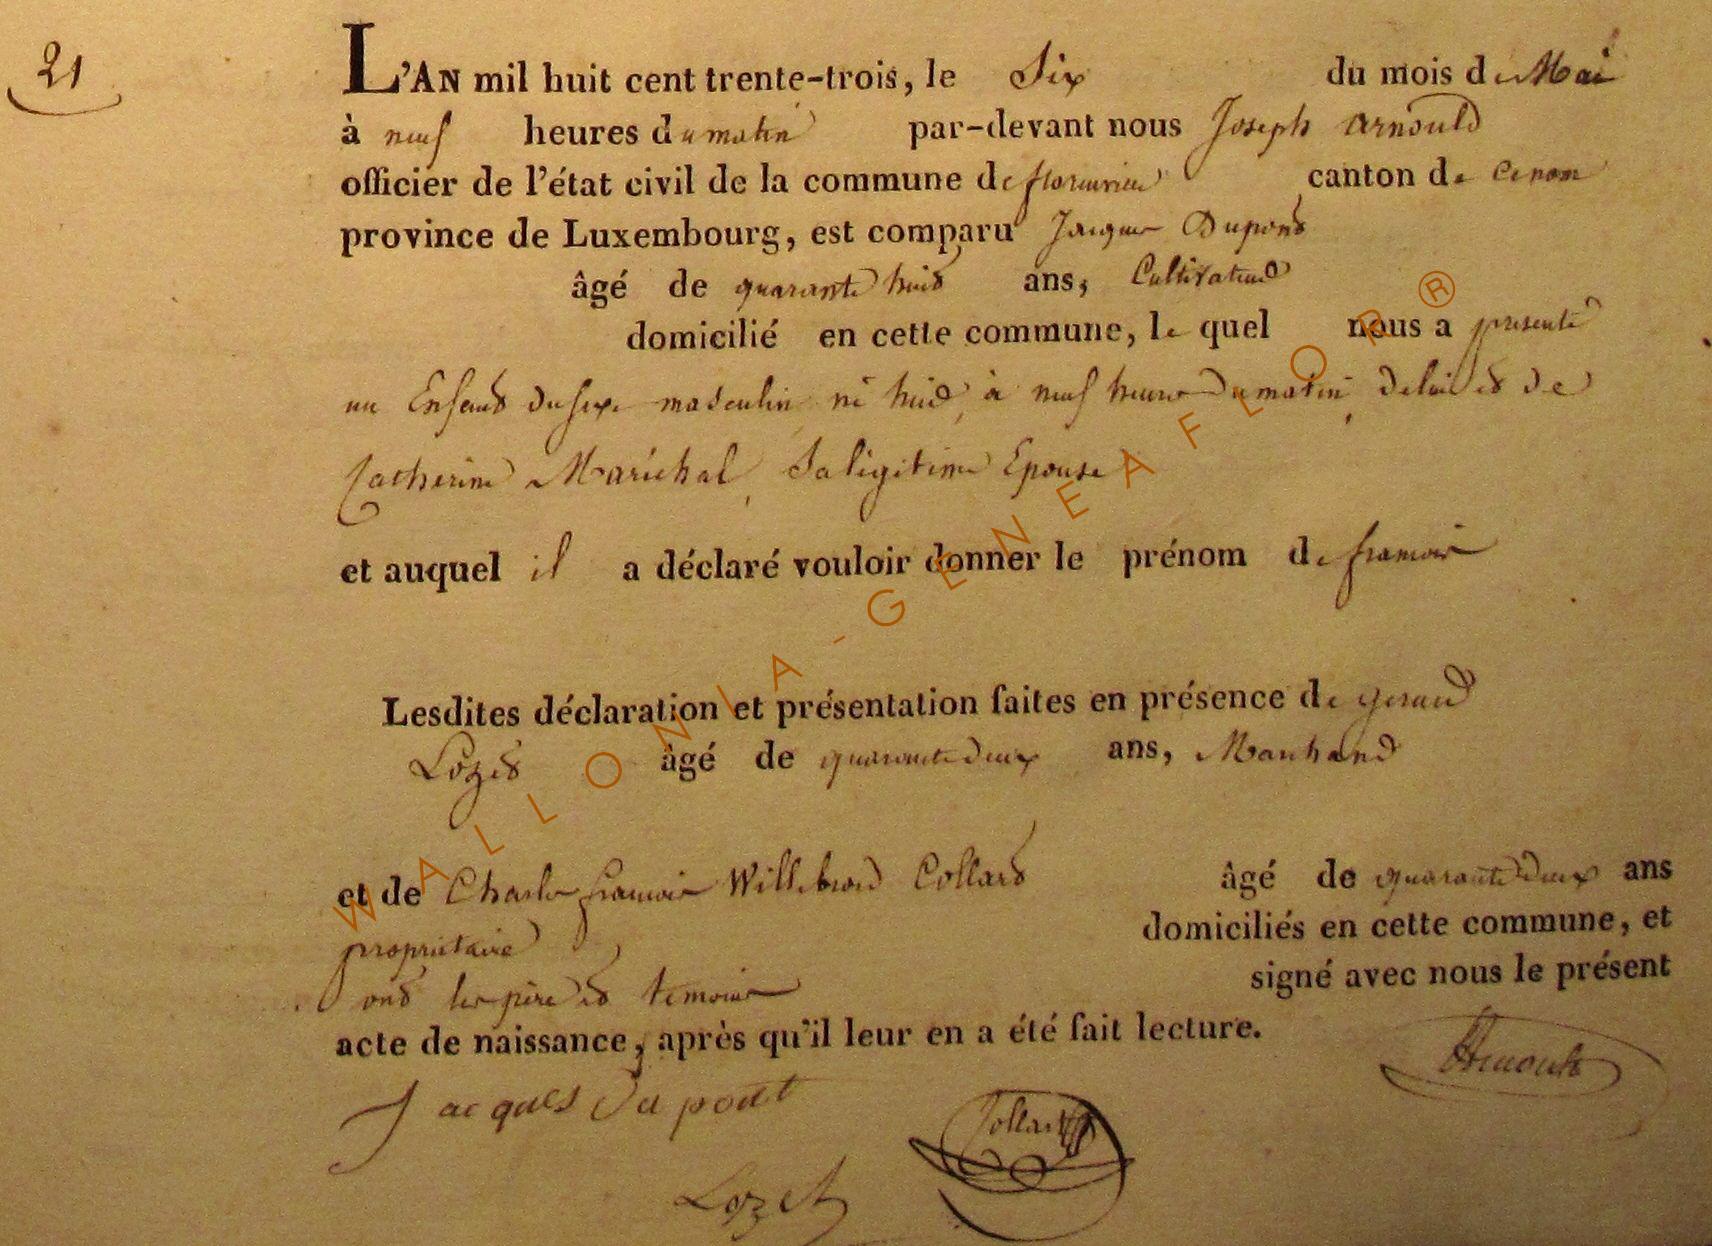 21
L'AN mil huit cent trente-trois, le Six du mois de Mai
à neuf heures du matin par-devant nous Joseph Arnould
officier de l'état civil de la commune de canton de
province de Luxembourg, est comparu Jacques Dupont
âgé de quarante huit ans, Cultivateur
domicilié en cette commune, le quel nous a presenté
un Enfant du sexe masculin né huit à neuf heures du matin, de lui et de
Catherine Maréchal, Sa légitime Epouse
et auquel il a déclaré vouloir donner le prénom de francois
Lesdites déclaration et présentation faites en présence de gerard
Lozet âgé de quarante deux ans, Marchand
et de Charles francois Willebrord Collard âgé de quarante deux ans
propriétaire domiciliés en cette commune, et
ont les père et temoins signé avec nous le présent
acte de naissance, après qu'il leur en a été fait lecture.
Arnould
Jacques Du pont
Collard
Lozet
WALLONIA-GENEAFLOR®